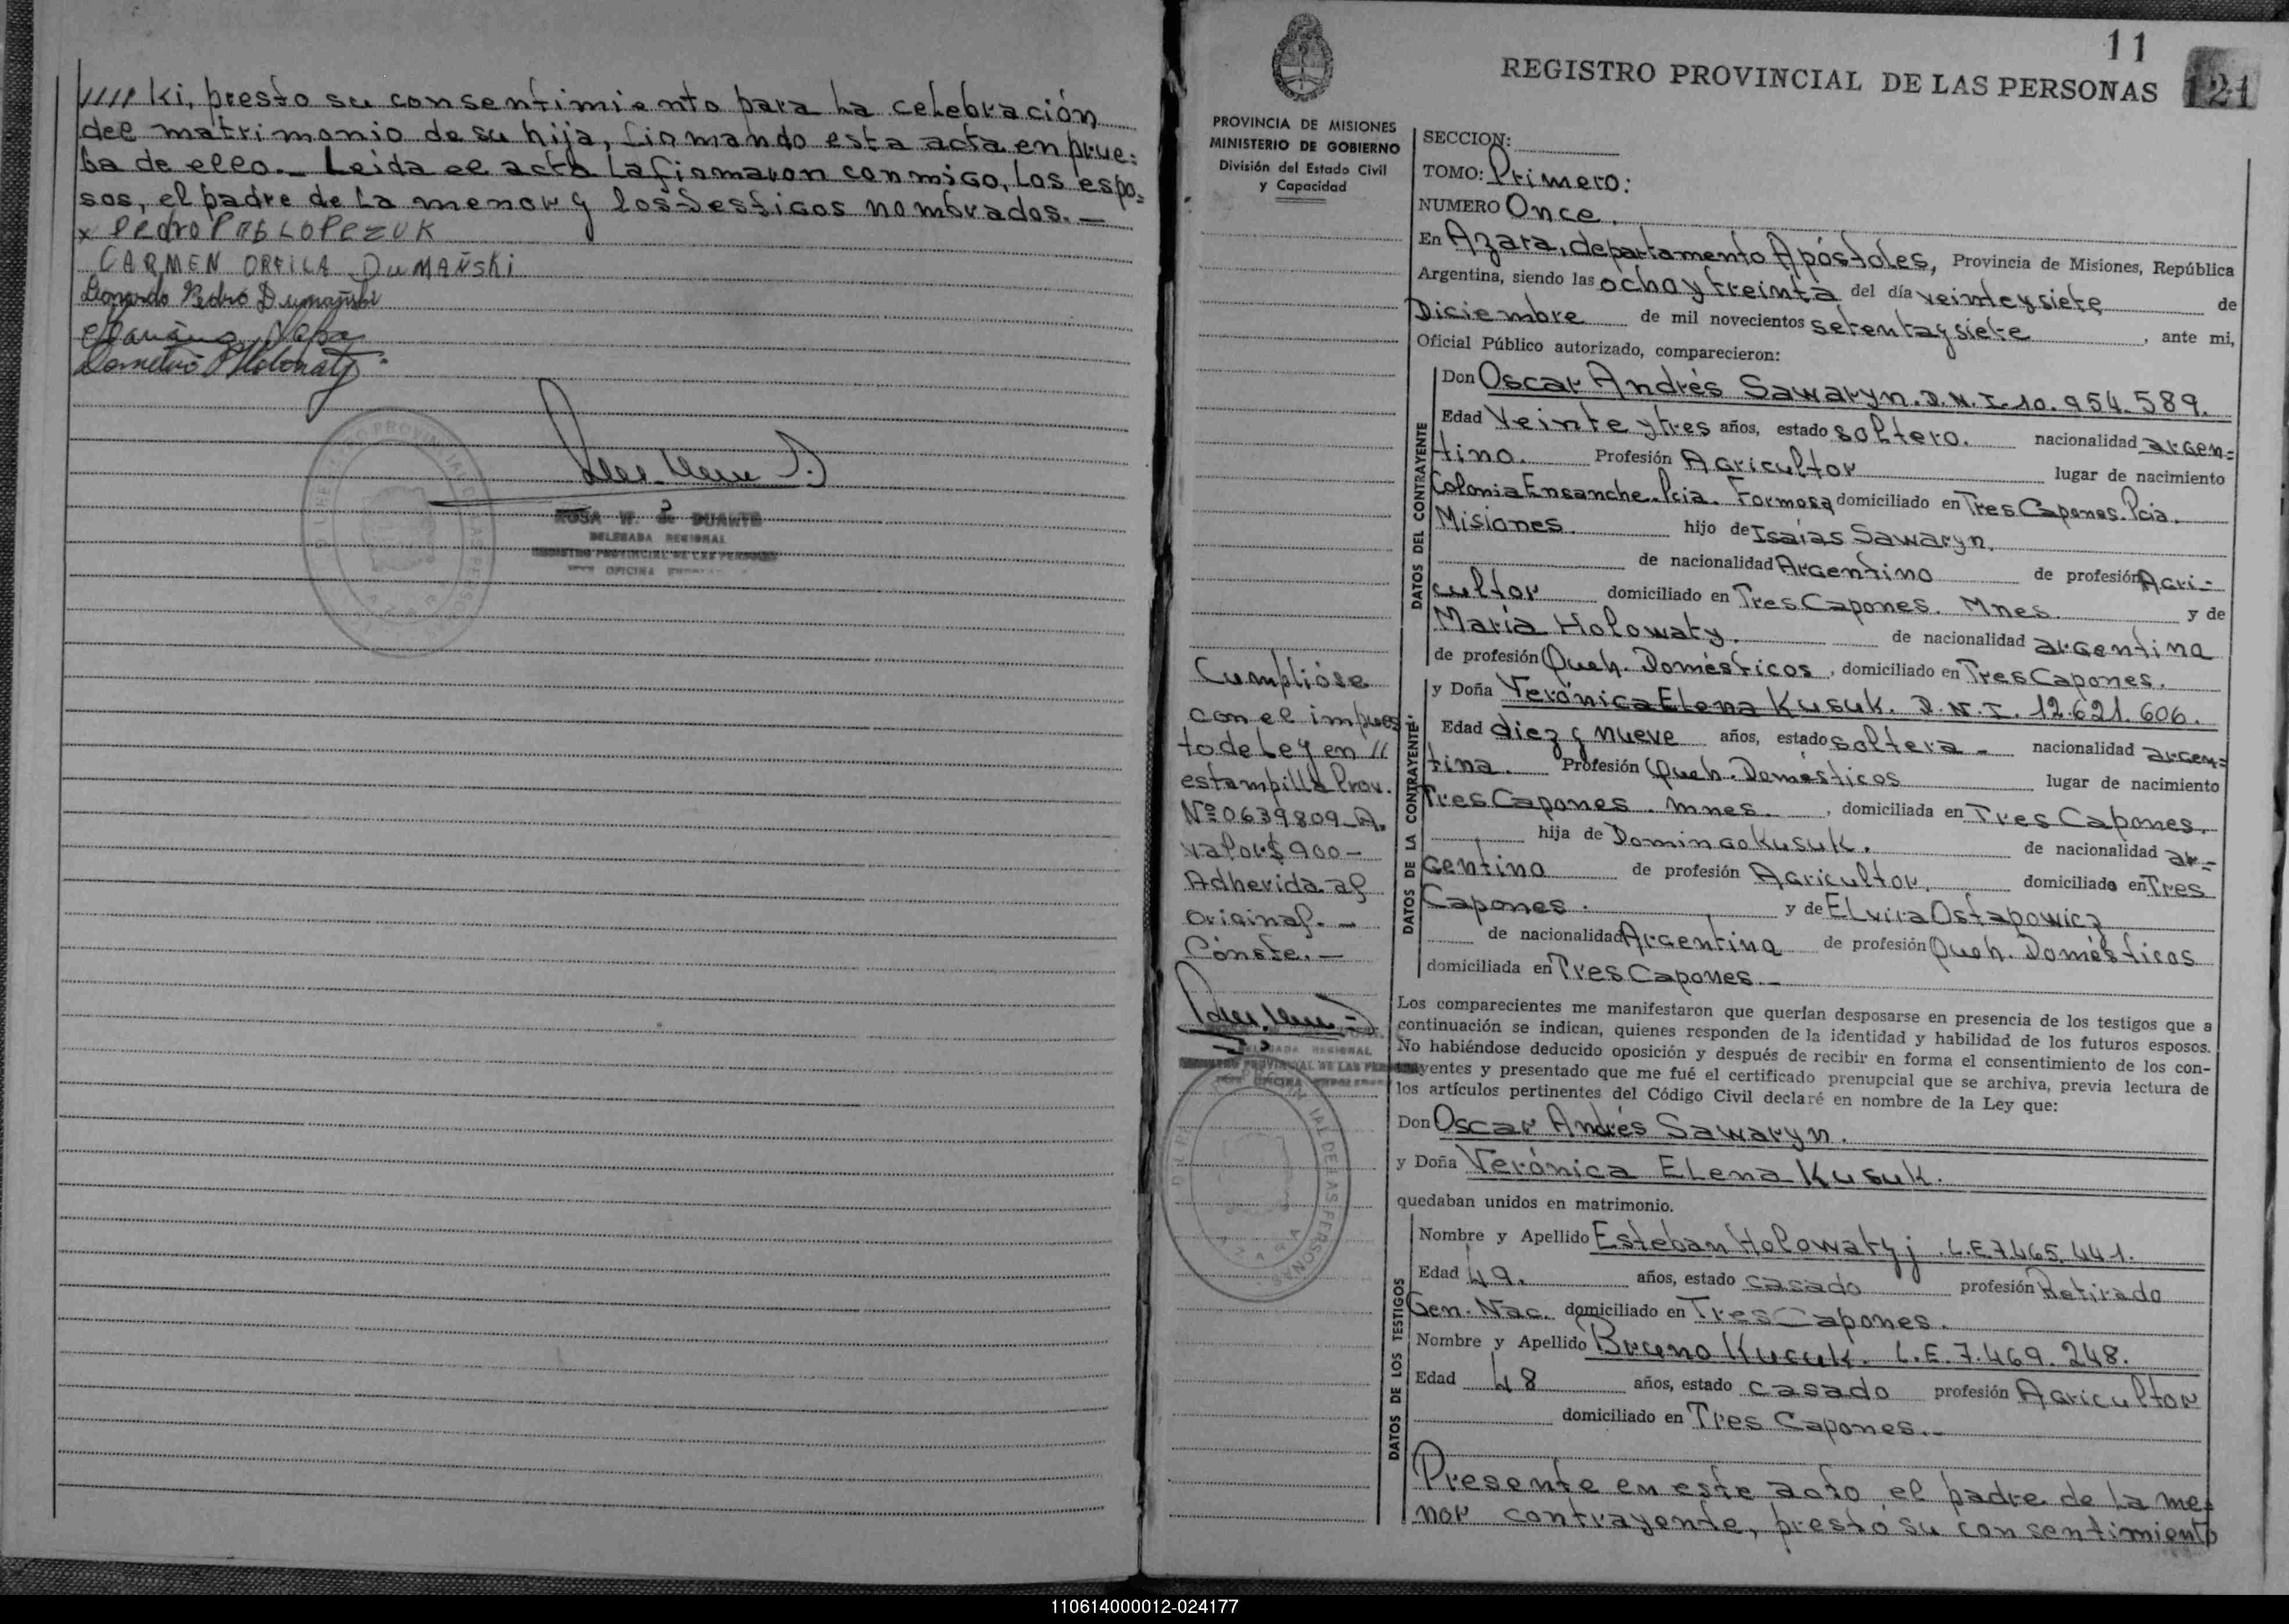 //// ki, presto su consentimiento para la celebración
del matrimonio de su hija, firmando esta acta en prue=
ba de ello.- Leida el acta la firmaron conmigo, los espo=
sos, el padre de la menor y los testigos nombrados. —
x Pedro PABLO PCZUK
CARMEN ORFILA DUMAÑSKi
Leonardo Pedro Dumañski
Demetrio Holowaty
ROSA W. de DUARTE
DELEGADA REGIONAL
REGISTRO PROVINCIAL DE LAS PERSONAS
OFICINA
11
REGISTRO PROVINCIAL DE LAS PERSONAS
121
PROVINCIA DE MISIONES
MINISTERIO DE GOBIERNO
División del Estado Civil
y Capacidad
SECCION:
TOMO: Primero:
NUMERO Once.
En Azara, departamento Apóstoles, Provincia de Misiones, República
Argentina, siendo las ocho y treinta del día veinte y siete de
Diciembre de mil novecientos setenta y siete, ante mi,
Oficial Público autorizado, comparecieron:
DATOS DEL CONTRAYENTE
Don Oscar Andrés Sawaryn. D.N.I. 10.954.589.
Edad Veinte y tres años, estado soltero. nacionalidad argen=
tino. Profesión Agricultor lugar de nacimiento
Colonia Ensanche. Pcia. Formosa domiciliado en Tres Capones. Pcia.
Misiones hijo de Isaías Sawaryn.
de nacionalidad Argentino de profesión Agri-
cultor domiciliado en Tres Capones. Mnes. y de
María Holowaty. de nacionalidad argentina
de profesión Queh. Domésticos, domiciliado en Tres Capones.
DATOS DE LA CONTRAYENTE:
y Doña Verónica Elena Kusuk. D.N.I. 12.621.606.
Edad diez y nueve años, estado soltera - nacionalidad argen=
tina. Profesión Queh. Domésticos lugar de nacimiento
Tres Capones. Mnes., domiciliada en Tres Capones.
hija de Domingo Kusuk. de nacionalidad ar=
gentino de profesión Agricultor. domiciliado en Tres
Capones. y de Elvira Ostapowicz
de nacionalidad Argentina de profesión Queh. Domésticos
domiciliada en Tres Capones.-
Cumplióse
con el impues
to de Ley en //
estampilla Prov.
Nº 0639809-A.
valor $ 900-
Adherida al
original. -
Conste. —
DELEGADA REGIONAL
REGISTRO PROVINCIAL DE LAS PERSONAS
Los comparecientes me manifestaron que querían desposarse en presencia de los testigos que a
continuación se indican, quienes responden de la identidad y habilidad de los futuros esposos.
No habiéndose deducido oposición y después de recibir en forma el consentimiento de los con-
trayentes y presentado que me fué el certificado prenupcial que se archiva, previa lectura de
los artículos pertinentes del Código Civil declaré en nombre de la Ley que:
Don Oscar Andrés Sawaryn.
y Doña Verónica Elena Kusuk.
quedaban unidos en matrimonio.
DATOS DE LOS TESTIGOS
Nombre y Apellido Esteban Holowatyj. L.E 7.465.441.
Edad 49. años, estado casado profesión Retirado
Gen. Nac. domiciliado en Tres Capones.
Nombre y Apellido Bruno Kucuk. L.E. 7.469.248.
Edad 48 años, estado casado profesión Agricultor
domiciliado en Tres Capones.-
Presente en este acto el padre de la me=
nor contrayente, prestó su consentimiento
110614000012-024177